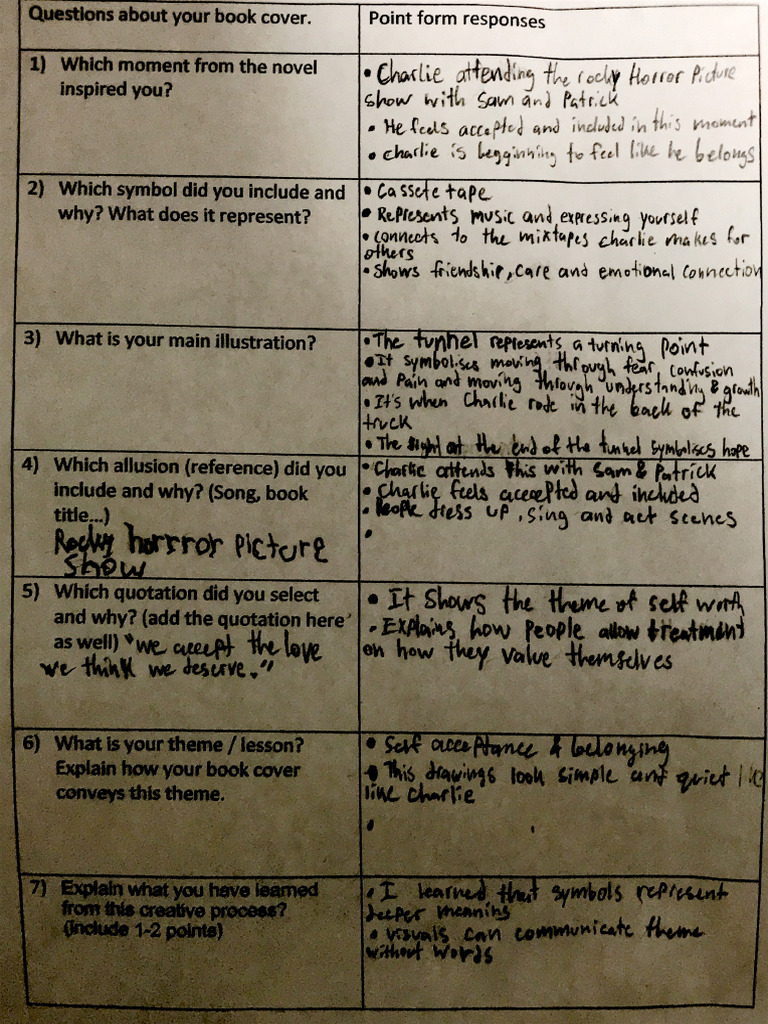 Questions about your book cover.
Point form responses
1) Which moment from the novel
inspired you?
• Charlie attending the rocky Horror Picture
show with Sam and Patrick
• He feels accepted and included in this moment
• charlie is begginning to feel like he belongs
2) Which symbol did you include and
why? What does it represent?
• Cassete tape
• Represents music and expressing yourself
• connects to the mixtapes charlie makes for
others
• Shows friendship, care and emotional connection
3) What is your main illustration?
• The tunnel represents a turning point
• It symbolises moving through fear, confusion
and pain and moving through understanding & growth
• It's when Charlie rode in the back of the
truck
• The light at the end of the tunnel symbolises hope
4) Which allusion (reference) did you
include and why? (Song, book
title...)
Rocky horror picture
show
• Charlie attends this with Sam & Patrick
• Charlie feels accepted and included
• People dress up, sing and act scenes
•
5) Which quotation did you select
and why? (add the quotation here
as well) "we accept the love
we think we deserve."
• It shows the theme of self worth
• Explains how people allow treatment
on how they value themselves
6) What is your theme / lesson?
Explain how your book cover
conveys this theme.
• Self acceptance & belonging
• This drawings look simple and quiet
like charlie
•
7) Explain what you have learned
from this creative process?
(include 1-2 points)
• I learned that symbols represent
deeper meanings
• visuals can communicate theme
without words